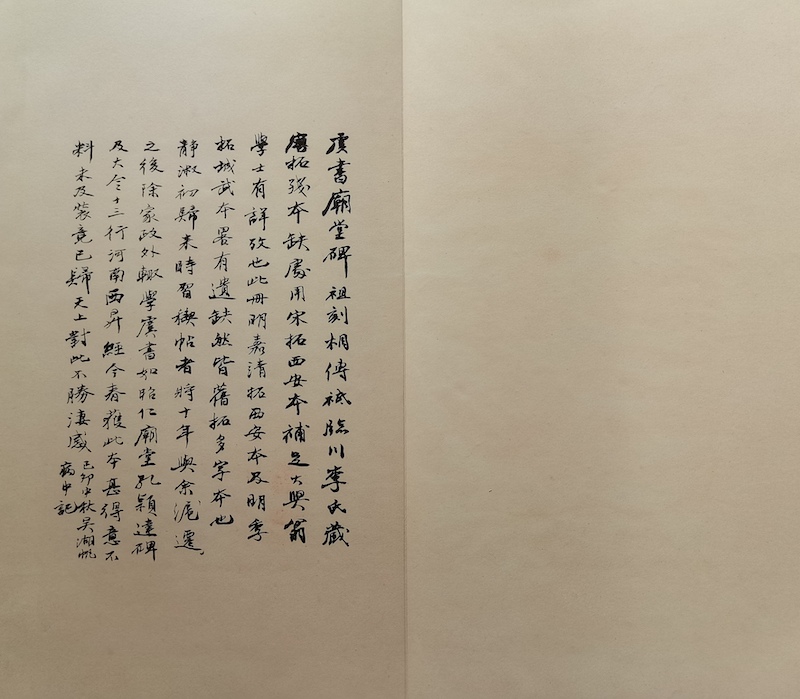 虞書廟堂碑祖刻相傳祇臨川李氏藏
唐拓殘本缺處用宋拓西安本補足大興翁
學士有詳攷也此冊明嘉清拓西安本及明季
拓城武本畧有遺缺然皆舊拓多字本也
靜淑初歸未時習稧帖者將十年與余滬遷
之後除家政外輙學虞書如昭仁廟堂孔穎達碑
及大令十三行河南西昇經今春獲此本甚得意不
料未及裝竟已歸天上對此不勝淒感己卯中秋吴湖帆
病中記